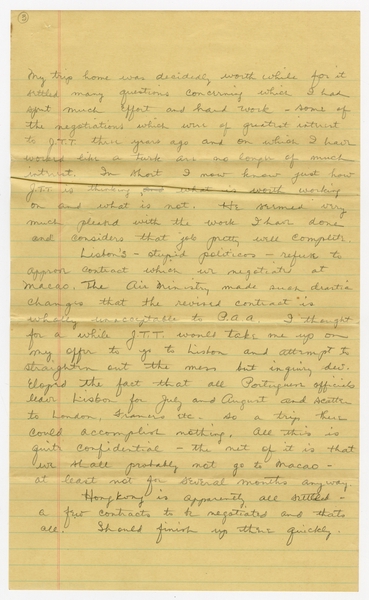 3
My trip home was decidedly worth while for it
settled many questions concerning which I had
spent much effort and hard work - some of
the negotiations which were of greatest interest
to J.T.T. three years ago and on which I have
worked like a Turk are no longer of much
interest. In short I now know just how
J.T.T. is thinking and what is worth working
on and what is not. He seemed very
much pleased with the work I have done
and considers that job pretty well complete.
Lisbon's - stupid politicos - refuse to
approve contract which we negotiated at
Macao. The Air Ministry made such drastic
changes that the revised contract is
wholly unacceptable to P.A.A. I thought
for a while J.T.T. would take me up on
my offer to go to Lisbon and attempt to
straighten out the mess but inquiry dev-
eloped the fact that all Portuguese officials
leave Lisbon for July and August and scatter
to London, etc - so a trip there
could accomplish nothing. All this is
quite confidential - the net of it is that
we shall probably not go to Macao -
at least not for several months anyway.
Hongkong is apparently all settled -
a few contracts to be negotiated and thats
all. Should finish up there quickly.